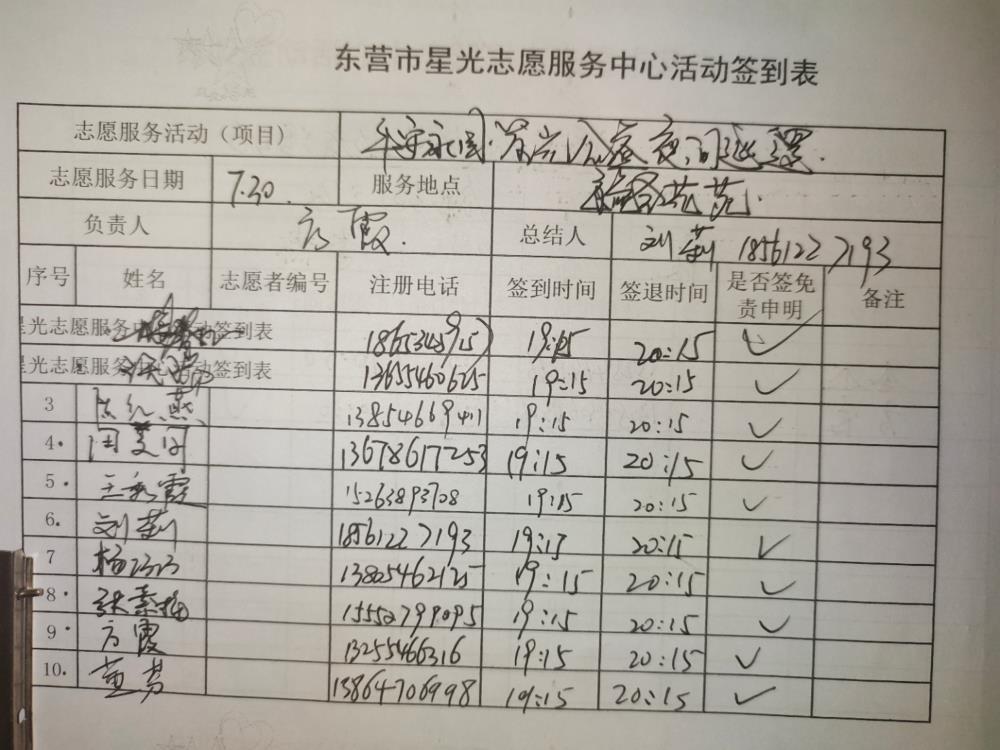 东营市星光志愿服务中心活动签到表
志愿服务活动（项目） 平安永
志愿服务日期 7.30 服务地点
负责人 方霞. 总结人 刘莉 18561227193
序号 姓名 志愿者编号 注册电话 签到时间 签退时间 是否签免责申明 备注
星光志愿服务中 动签到表 19:15 20:15 ✓
星光志愿服务 动签到表 13655460625 19:15 20:15 ✓
3 陈红燕 13854669411 19:15 20:15 ✓
4. 周美同 13678617253 19:15 20:15 ✓
5. 王秀霞 15263893708 19:15 20:15 ✓
6. 刘莉 18561227193 19:15 20:15 ✓
7 杨 13805462125 19:15 20:15 ✓
8. 张素梅 15552799095 19:15 20:15 ✓
9. 方霞 13255466316 19:15 20:15 ✓
10. 董芳 13864706998 19:15 20:15 ✓